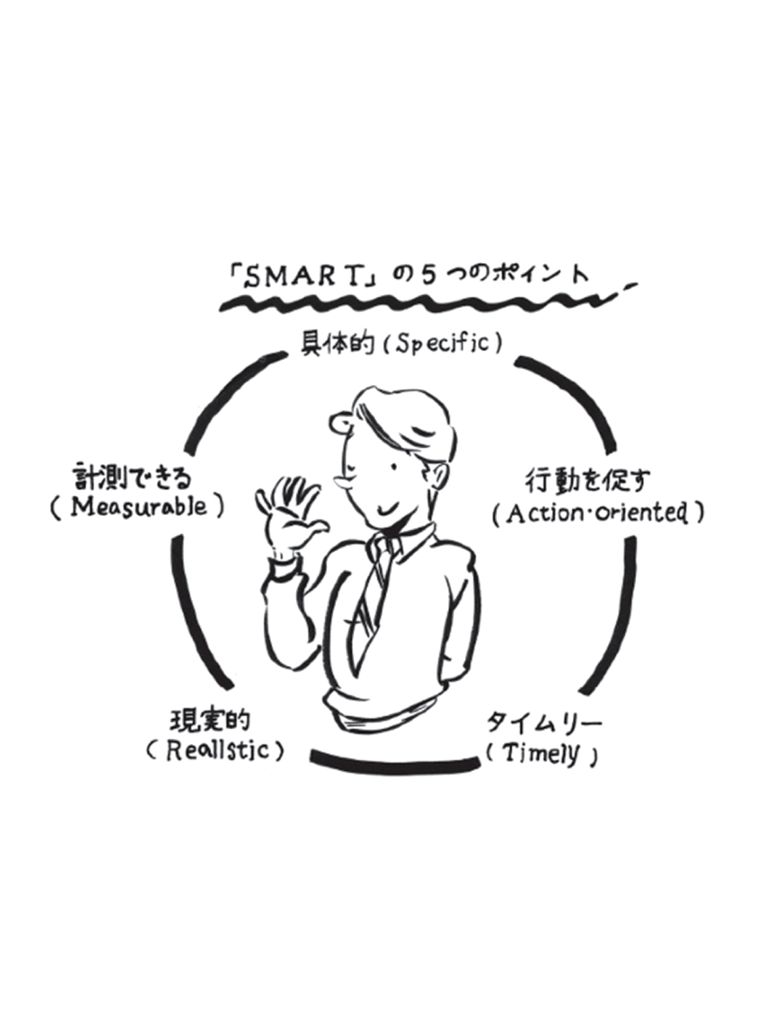 「SMART」の5つのポイント
具体的(Specific)
計測できる
(Measurable)
行動を促す
(Action・oriented)
現実的
(Reallstic)
タイムリー
(Timely)